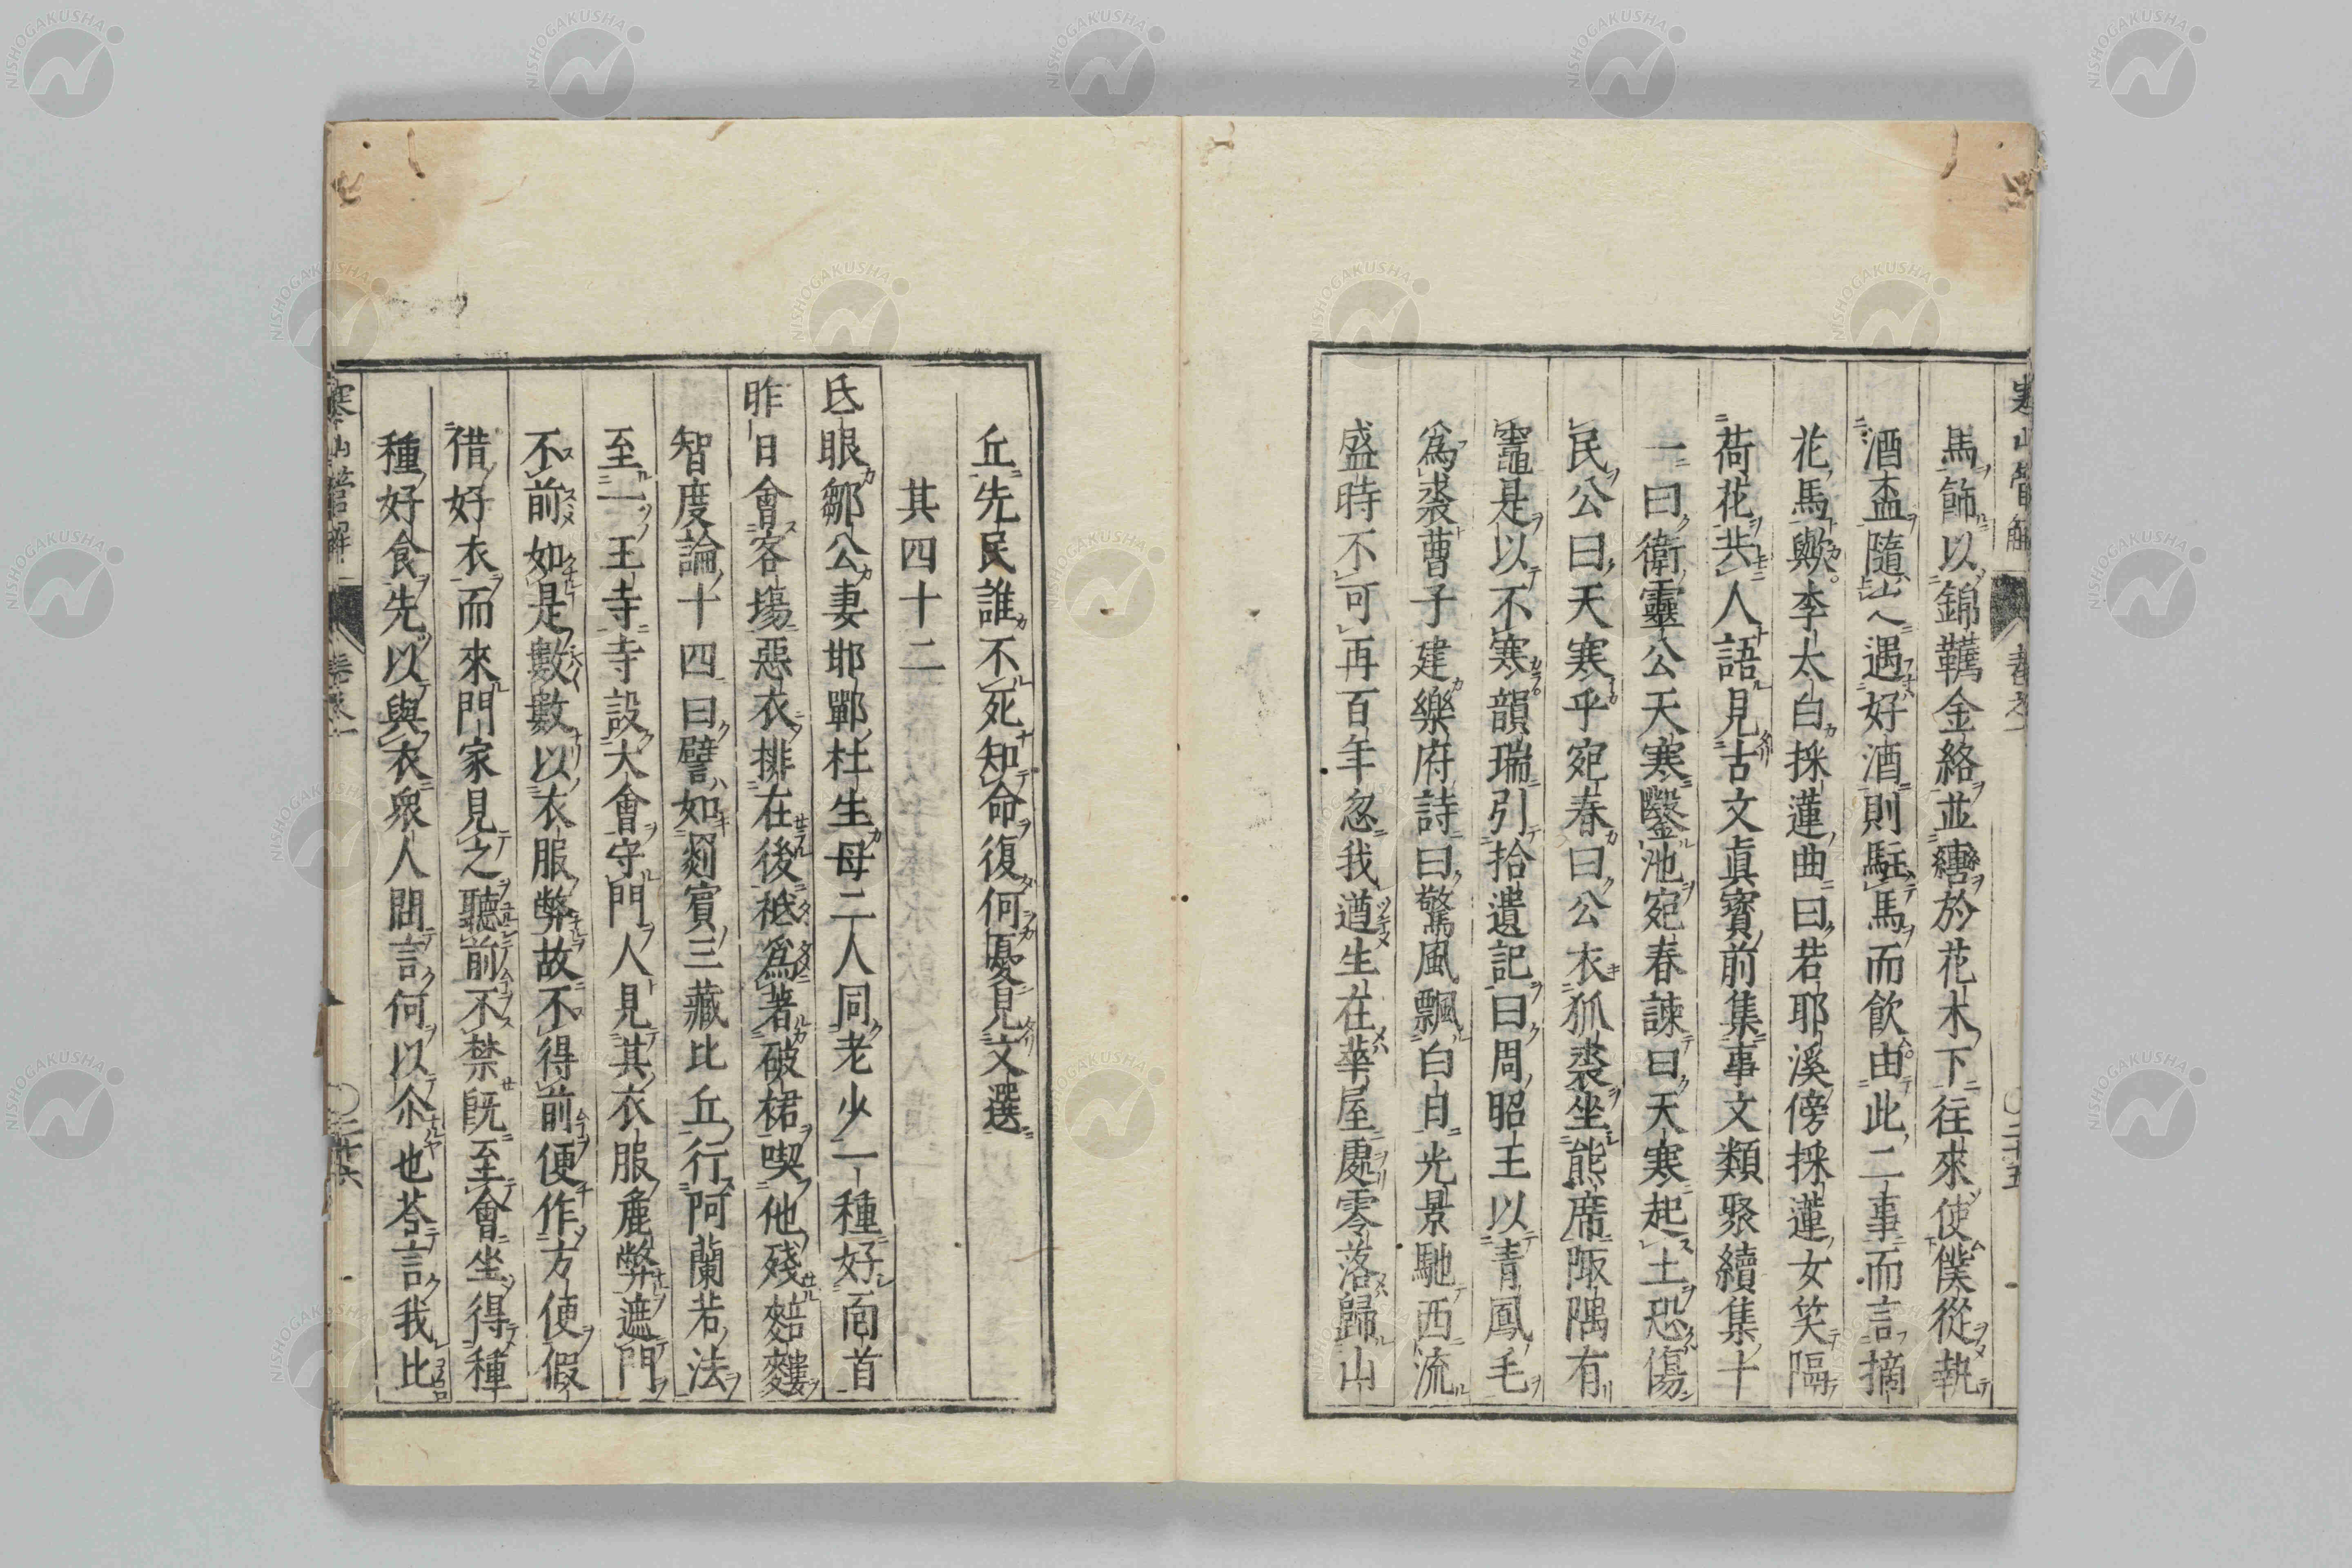 馬飾以錦韉金絡並轡於花木下往來使僕從執
酒盃隨之遇好酒則駐馬而飲由此二事而言摘
花馬歟李太白採蓮曲曰若耶溪傍採蓮女笑隔
荷花共人語見古文眞寳前集事文類聚續集十
一曰衛靈公天寒鑿池宛春諫曰天寒起土恐傷
民公曰天寒乎宛春曰公衣狐裘坐熊席陬隅有
竈是以不寒韻瑞引拾遺記曰周昭王以青鳳毛
爲裘曹子建樂府詩曰驚風飄白日光景馳西流
盛時不可再百年忽我遒生在華屋處零落歸山
丘先民誰不死知命復何憂見文選
其四十二
氐眼鄒公妻邯鄲杜生母二人同老少一種好面首
昨日會客塲惡衣排在後衹爲著破裙喫他殘䴺𪍣
智度論十四曰譬如罽賓三藏比丘行阿蘭若法
至一王寺寺設大會守門人見其衣服麁弊遮門
不前如是數數以衣服弊故不得前便作方便假
借好衣而來門家見之聽前不禁既至會坐得種
種好食先以與衣衆人問言何以尒也荅言我比
寒山管解
卷之一
〇二十六
NISHOGAKUSHA